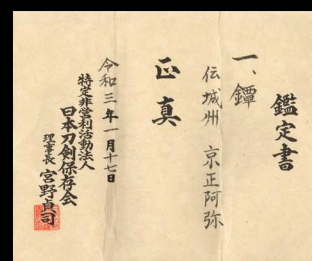 鑑定書
一、鐔
伝城州 京正阿弥
正真
令和三年一月十七日
特定非営利活動法人
日本刀剣保存会
理事長 宮野貞司